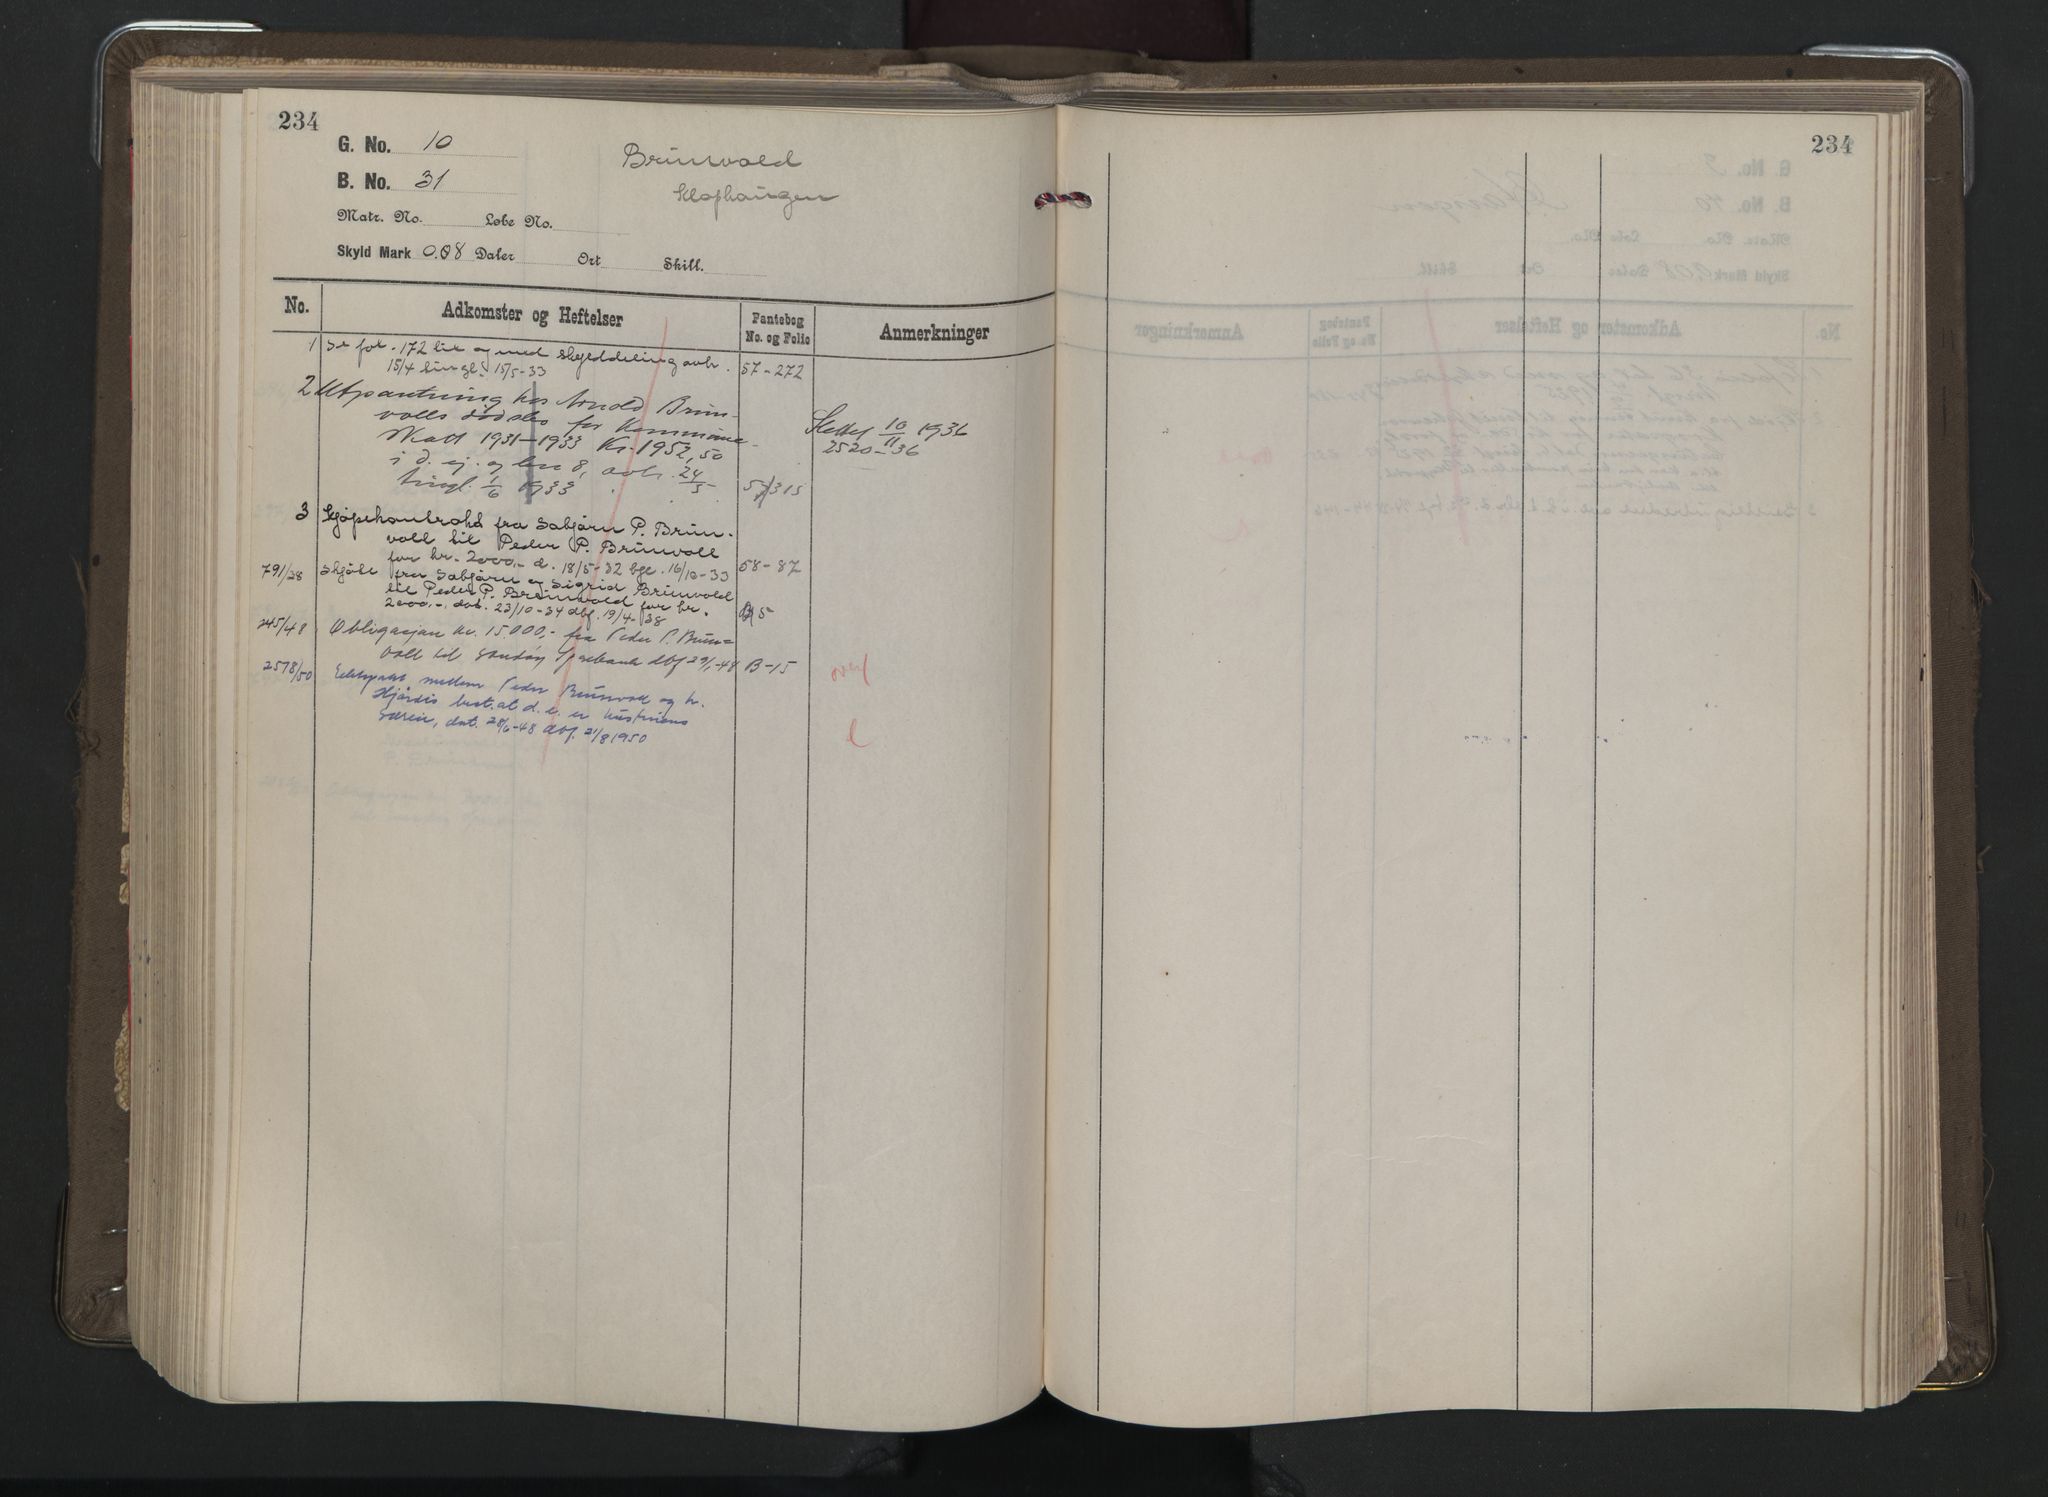 234
G. No. 10
Brunvold
B. No. 31
Klophaugen
Matr. No. Løbe No.
Skyld Mark 0.08 Daler Ort Skill.
No. Adkomster og Heftelser Pantebog No. og Folio Anmerkninger
1 Se fol. 172 litr og med skylddeling avh.
15/4 tingl. 15/5-33 57-272
2 Utpantning hos Arnold Brun-
volls dødsbo for Kommune-
skatt 1931-1933 Kr. 1952,50
i d. ej. og bnr 8, avh. 24/5
tingl. 1/6 1933 57/315
Slettet 10/11 1936
2520-36
3 Kjøpekontrakt fra Sabjørn P. Brun-
voll til Peder P. Brunvoll
for kr. 2000,- d. 18/5-32 bgl. 16/10-33 58-87
791/38 Skjøte fra Sabjørn og Sigrid Brunvold
til Peder P. Brunvold for kr.
2000,-, dat. 23/10-34 dbf. 19/4-38 B 5
245/48 Obligasjon kr. 15.000,- fra Peder P. Brun-
voll til Sandøy Sparebank dbf 29/1-48 B-15
2578/50 Ektepakt mellom Peder Brunvoll og h.
Hjørdis best. at d. e. er hustruens
særeie, dat. 28/6-48 dbf. 21/8 1950
234